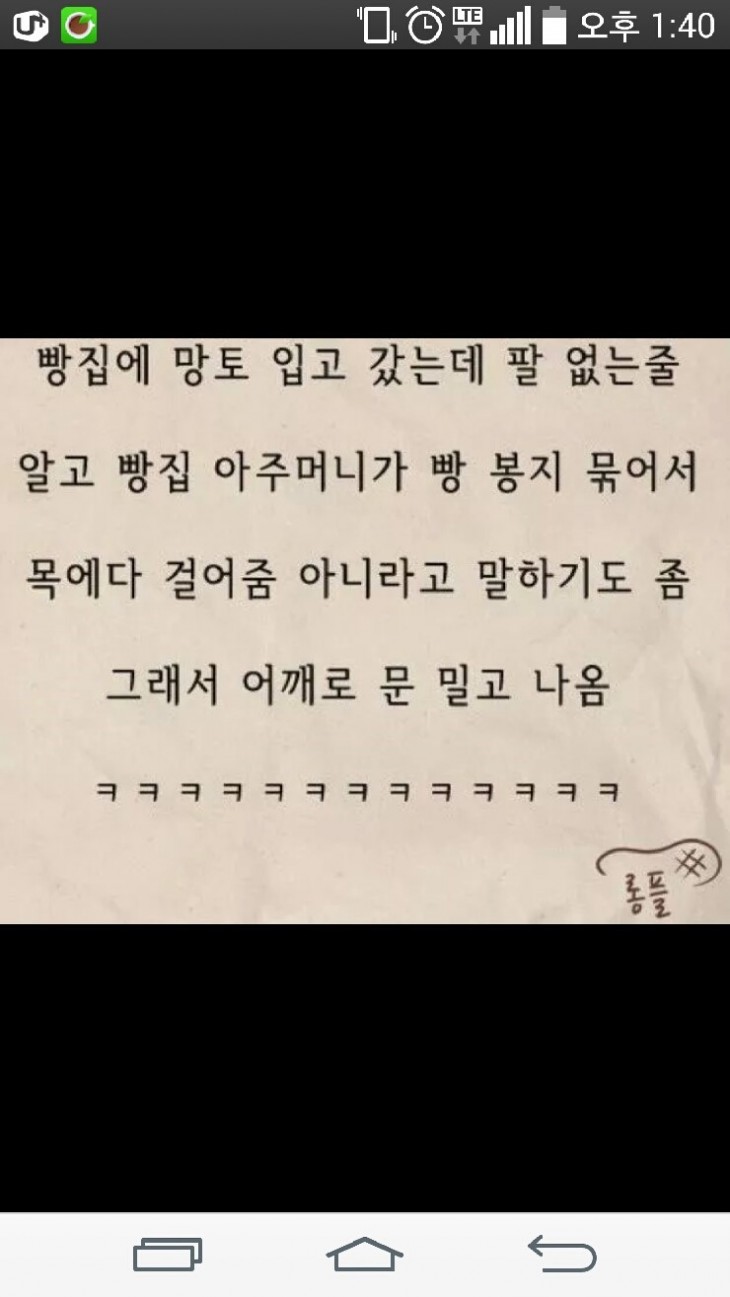 U+
LTE
오후 1:40
빵집에 망토 입고 갔는데 팔 없는줄
알고 빵집 아주머니가 빵 봉지 묶어서
목에다 걸어줌 아니라고 말하기도 좀
그래서 어깨로 문 밀고 나옴
ㅋㅋㅋㅋㅋㅋㅋㅋㅋㅋㅋㅋㅋ
#
롱플